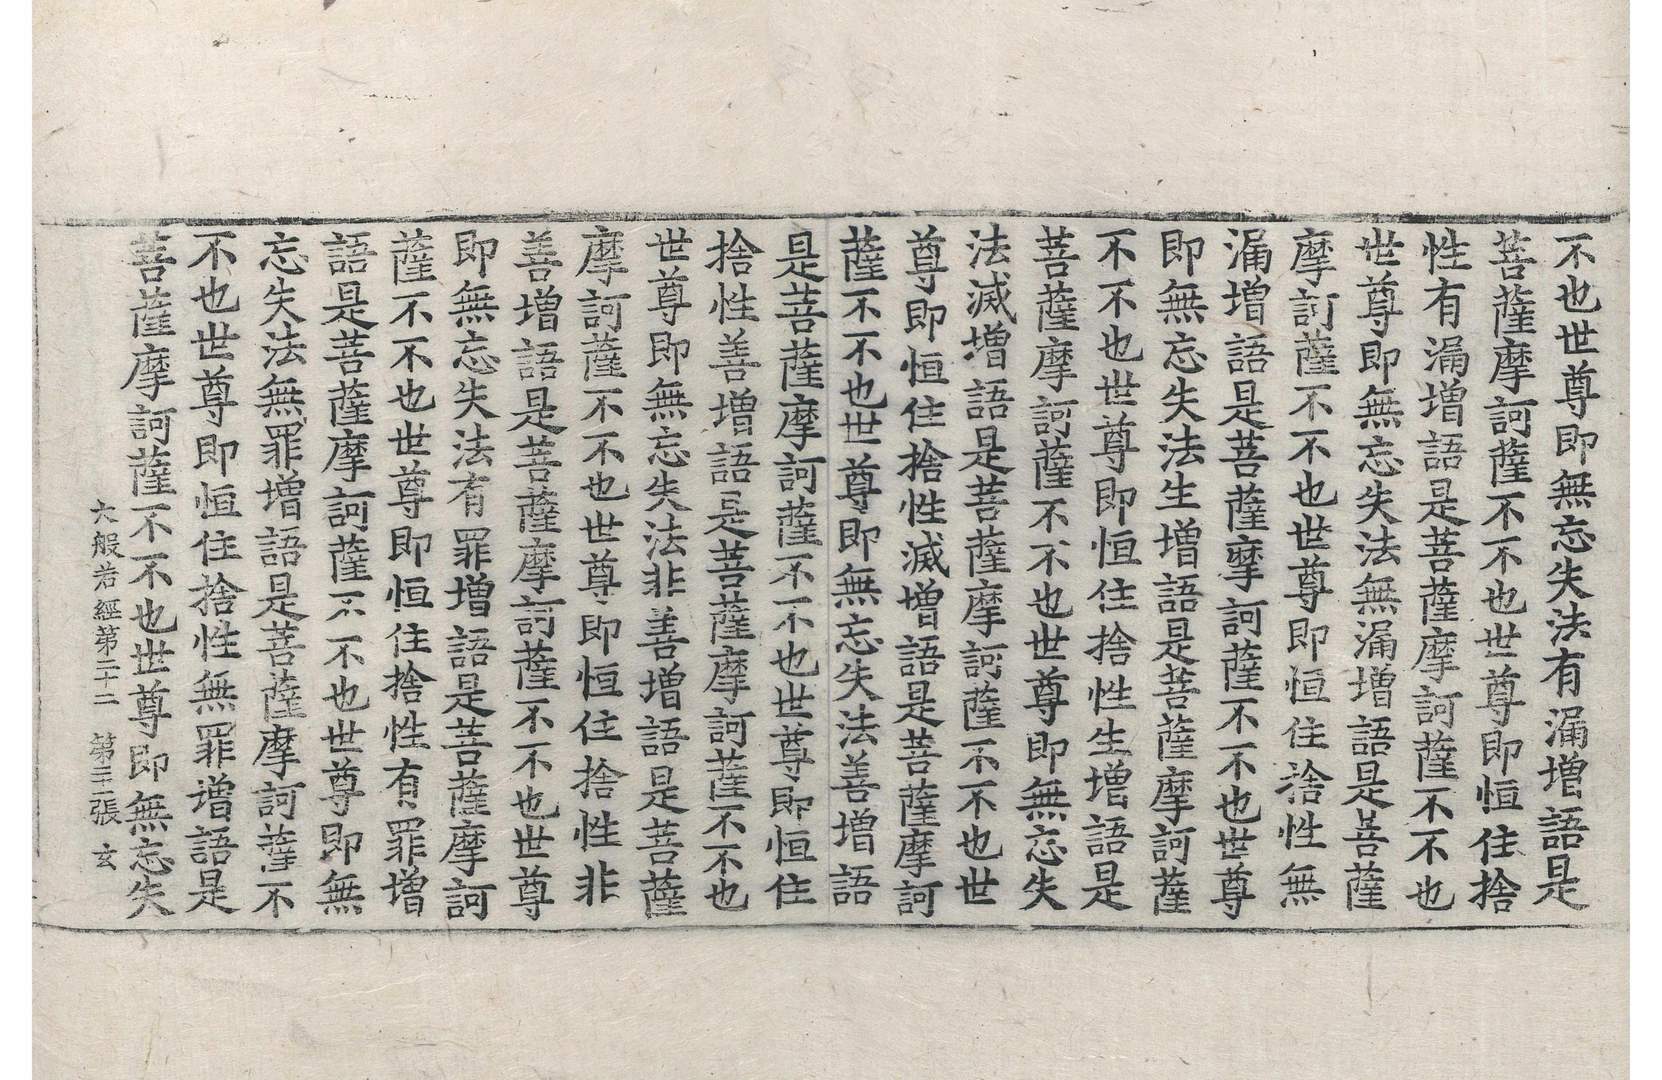 不也世尊即無忘失法有漏增語是
菩薩摩訶薩不不也世尊即恒住捨
性有漏增語是菩薩摩訶薩不不也
世尊即無忘失法無漏增語是菩薩
摩訶薩不不也世尊即恒住捨性無
漏增語是菩薩摩訶薩不不也世尊
即無忘失法生增語是菩薩摩訶薩
不不也世尊即恒住捨性生增語是
菩薩摩訶薩不不也世尊即無忘失
法滅增語是菩薩摩訶薩不不也世
尊即恒住捨性滅增語是菩薩摩訶
薩不不也世尊即無忘失法善增語
是菩薩摩訶薩不不也世尊即恒住
捨性善增語是菩薩摩訶薩不不也
世尊即無忘失法非善增語是菩薩
摩訶薩不不也世尊即恒住捨性非
善增語是菩薩摩訶薩不不也世尊
即無忘失法有罪增語是菩薩摩訶
薩不不也世尊即恒住捨性有罪增
語是菩薩摩訶薩不不也世尊即無
忘失法無罪增語是菩薩摩訶薩不
不也世尊即恒住捨性無罪增語是
菩薩摩訶薩不不也世尊即無忘失
大般若經第二十二 第三張 玄